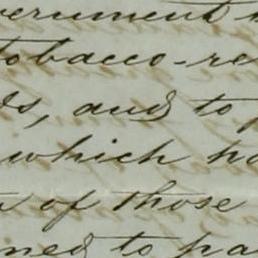 vernment
tobacco-re
ds, and to
which ha
of those
ned to pa